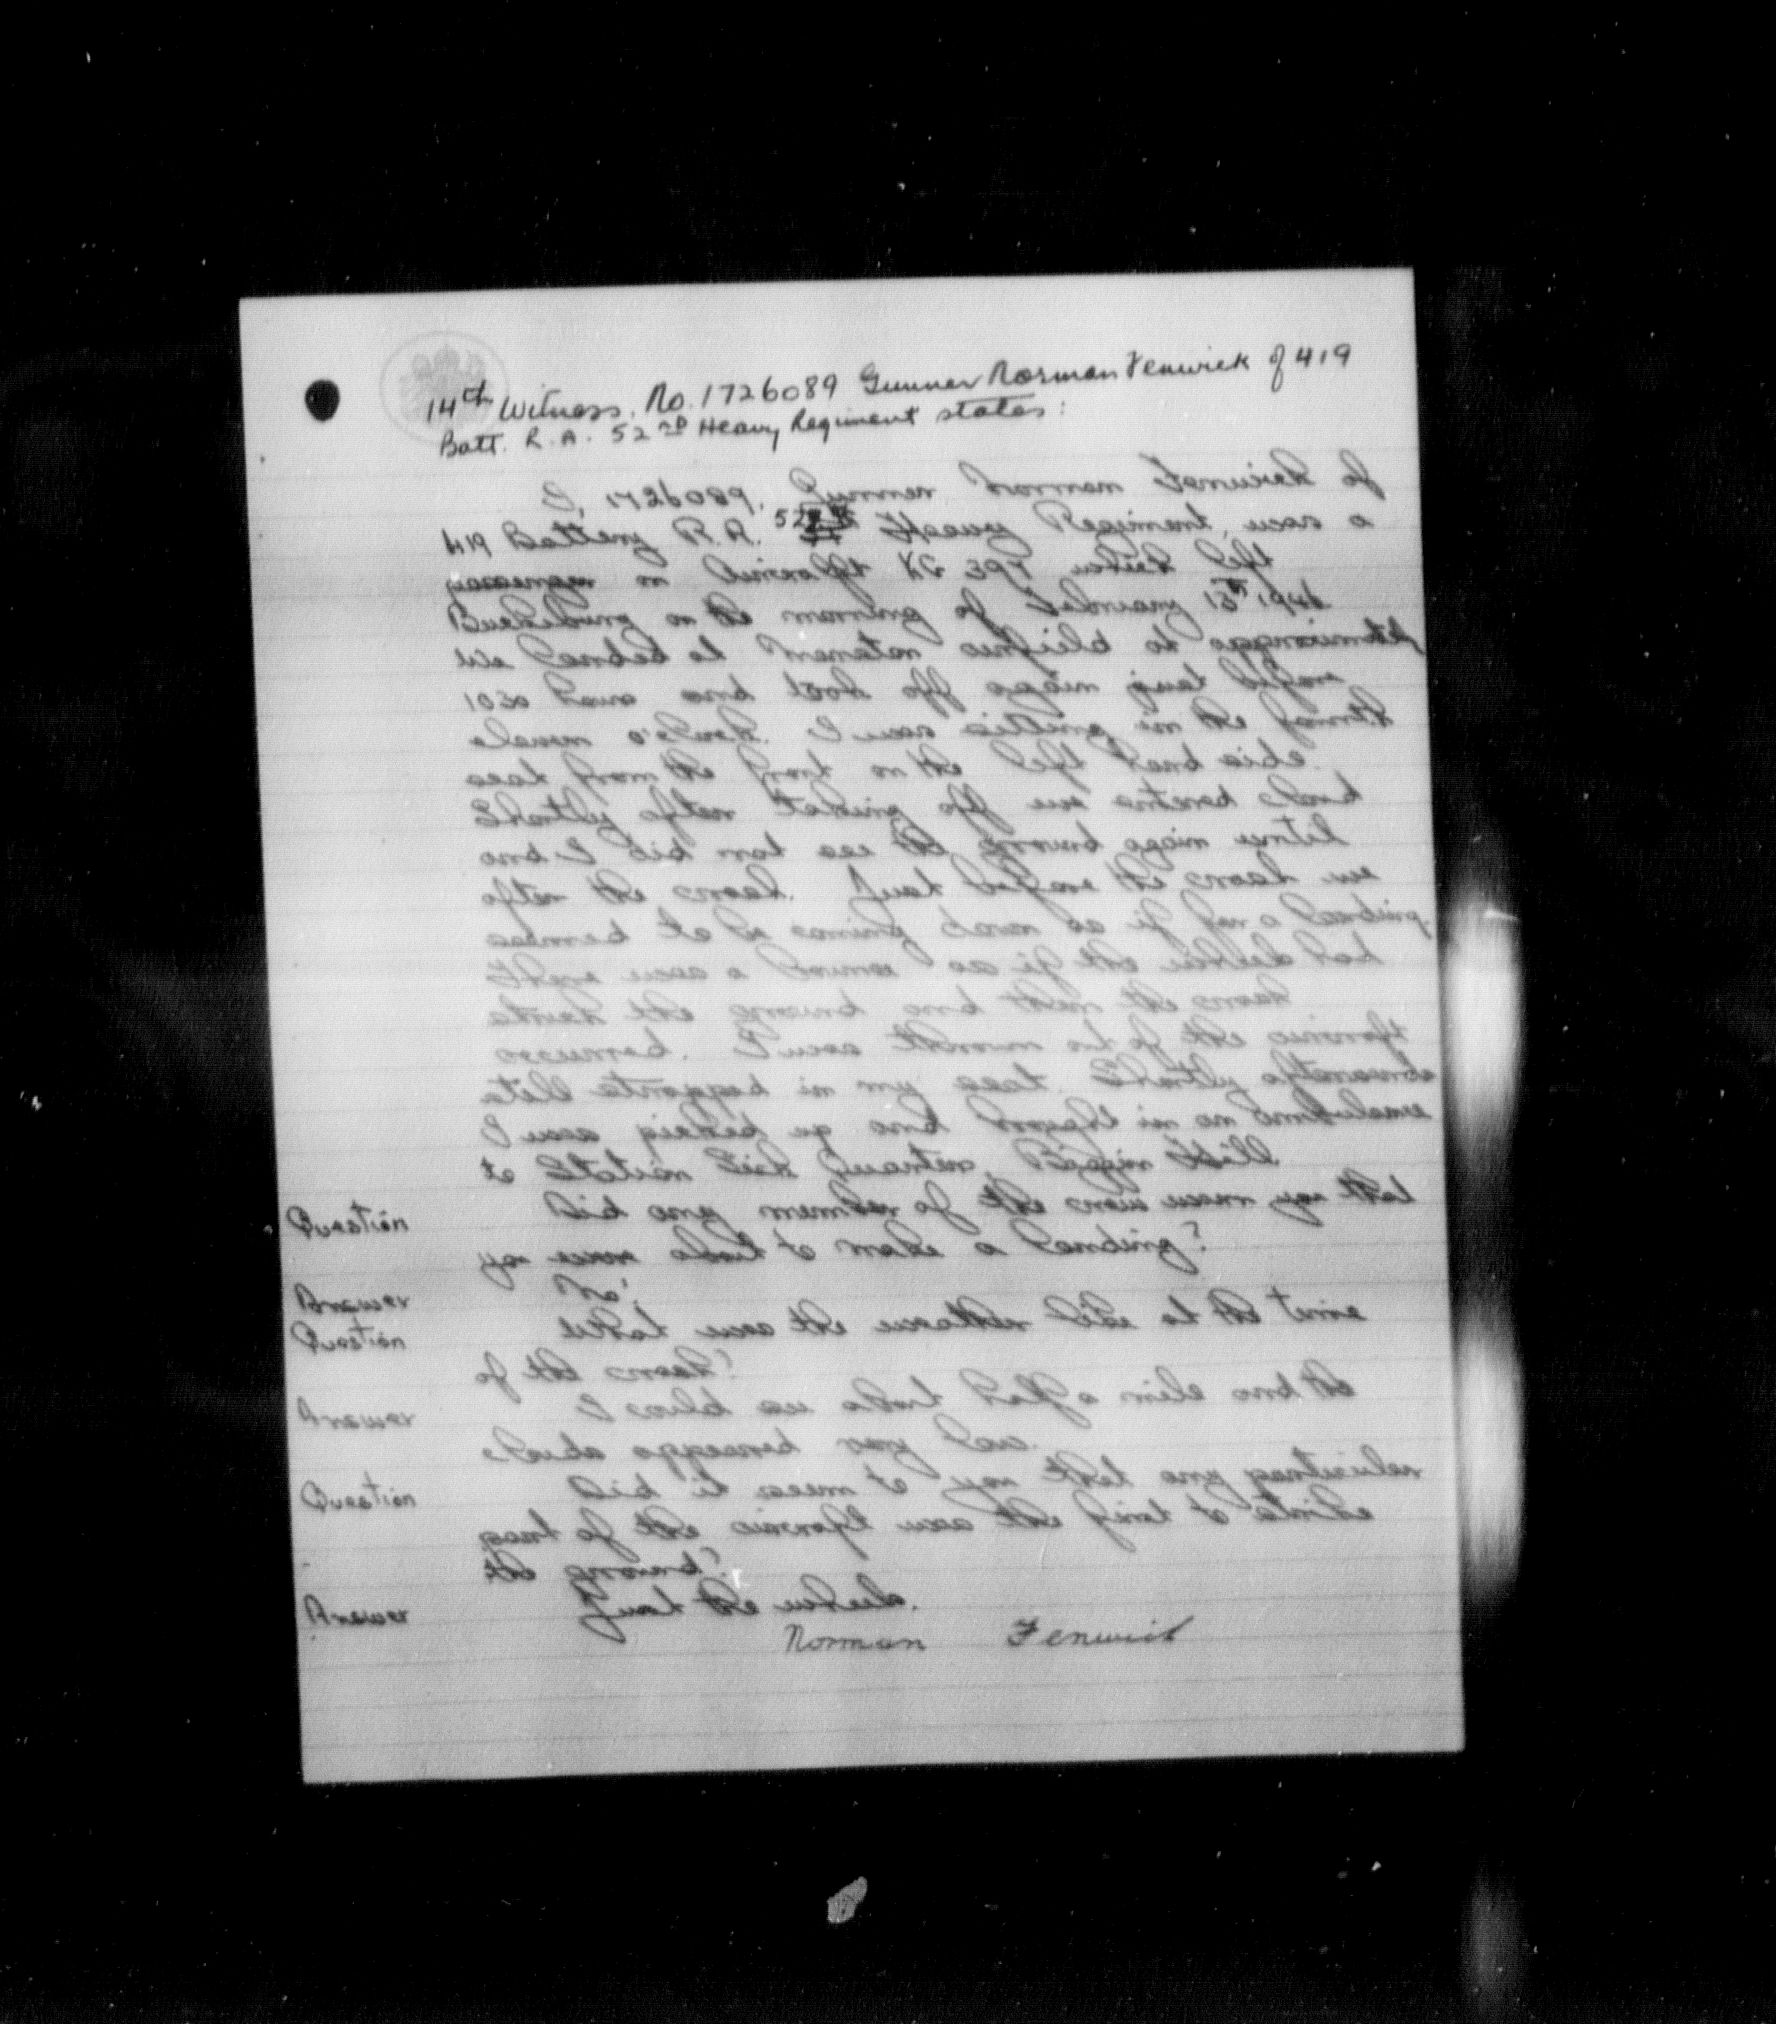 14th Witness. No. 1726089 Gunner Norman Fenwick of 419
Batt. R.A. 52nd Heavy Regiment states:
I, 1726089, Gunner Norman Fenwick of
419 Battery R.A. 52nd Heavy Regiment, was a
passenger in aircraft KG 397 which left
on the morning of October 15th 1946
We landed at Manston airfield at approximately
1030 hours and took off again just before
eleven o'clock. I was sitting in the fourth
seat from the front on the left hand side.
Shortly after taking off we entered cloud
and I did not see the ground again until
after the crash. Just before the crash we
seemed to be coming down as if for a landing.
There was a bounce as if the wheels had
struck the ground and then the crash
occurred. I was thrown out of the aircraft
still strapped in my seat. Shortly afterwards
I was picked up and brought in an ambulance
to Station Sick Quarters, Biggin Hill.
Question Did any member of the crew warn you that
you were about to make a landing?
Answer No.
Question What was the weather like at the time
of the crash?
Answer I could see about half a mile and the
clouds appeared very low.
Question Did it seem to you that any particular
part of the aircraft was the first to strike
the ground?
Answer Just the wheels.
Norman Fenwick